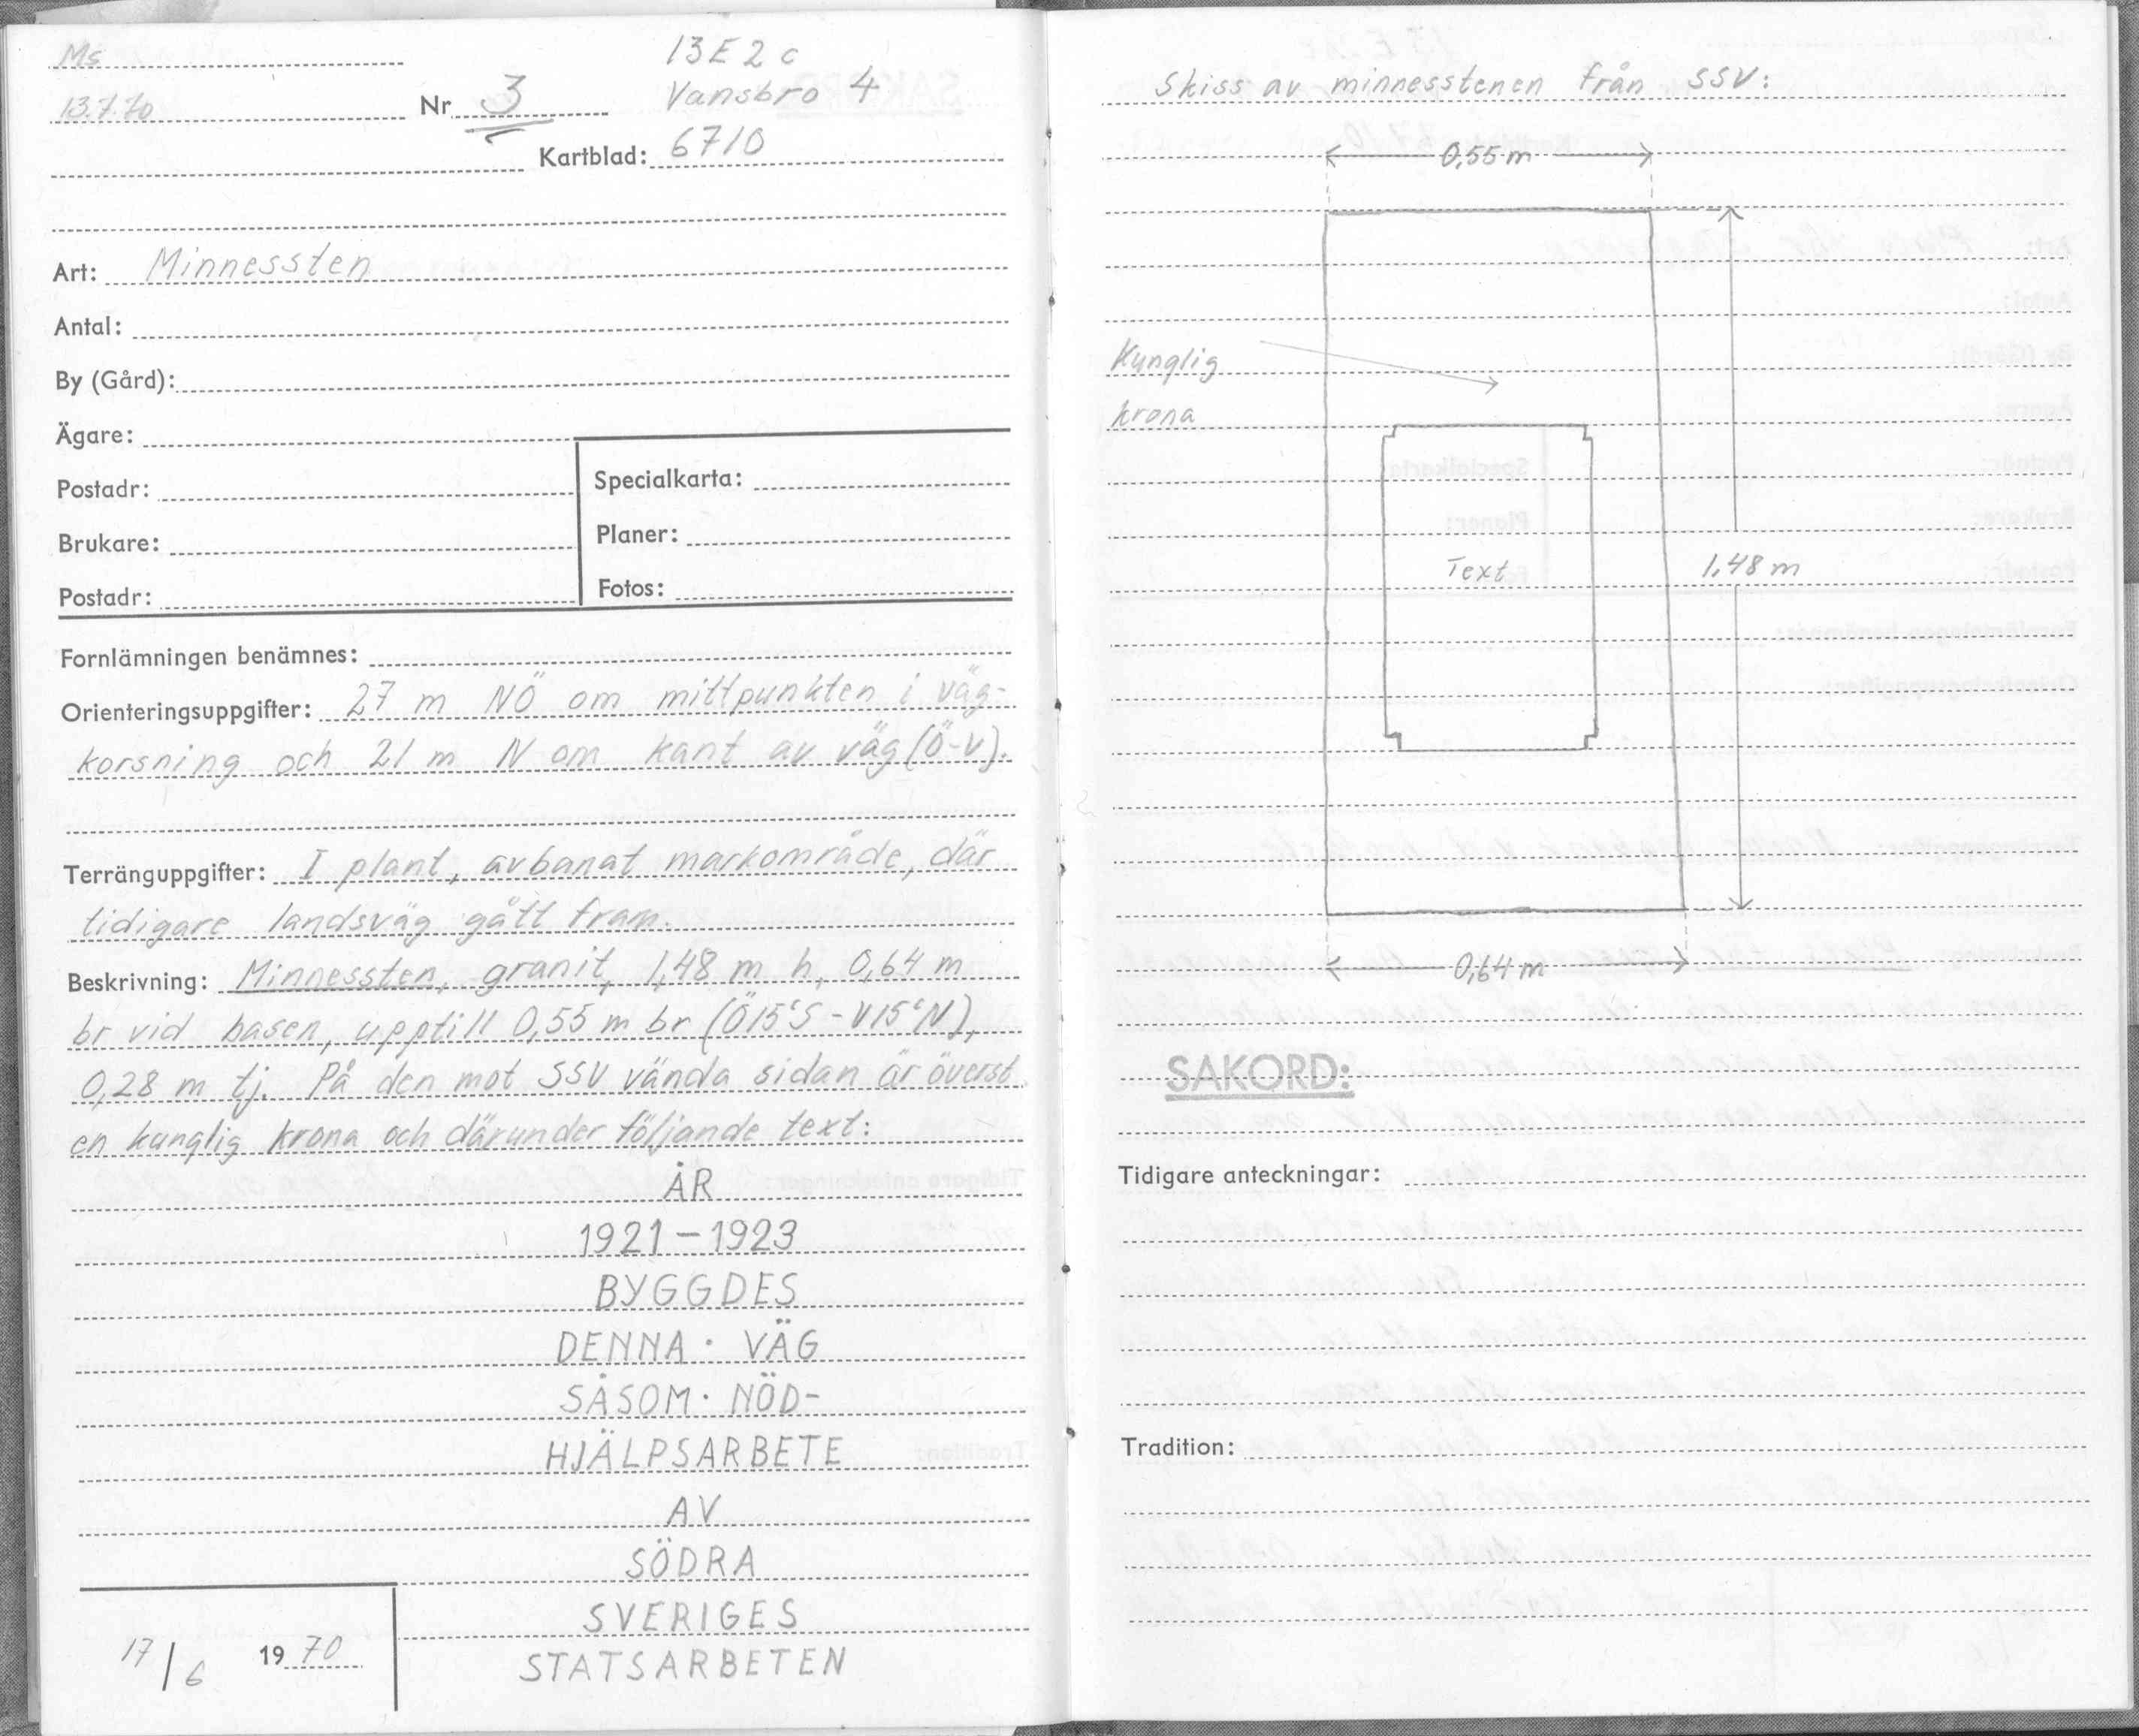 Ms
13.7.70
Nr 3
13E 2 c
Vansbro 4
Kartblad: 6710
Art: Minnessten
Antal:
By (Gård):
Ägare:
Postadr:
Brukare:
Postadr:
Specialkarta:
Planer:
Fotos:
Fornlämningen benämnes:
Orienteringsuppgifter: 27 m NÖ om mittpunkten i väg-
korsning och 21 m N om kant av väg (Ö-V).
Terränguppgifter: I plant, avbanat markområde, där
tidigare landsväg gått fram.
Beskrivning: Minnessten, granit, 1,48 m h, 0,64 m
br vid basen, upptill 0,55 m br (Ö15ᶜS - V15ᶜN),
0,28 m tj. På den mot SSV vända sidan är överst
en kunglig krona och därunder följande text:
ÅR
1921 – 1923
BYGGDES
DENNA · VÄG
SÅSOM · NÖD-
HJÄLPSARBETE
AV
SÖDRA
SVERIGES
STATSARBETEN
17/6 1970
Skiss av minnesstenen från SSV:
0,55 m
Kunglig
krona
Text
1,48 m
0,64 m
SAKORD:
Tidigare anteckningar:
Tradition: